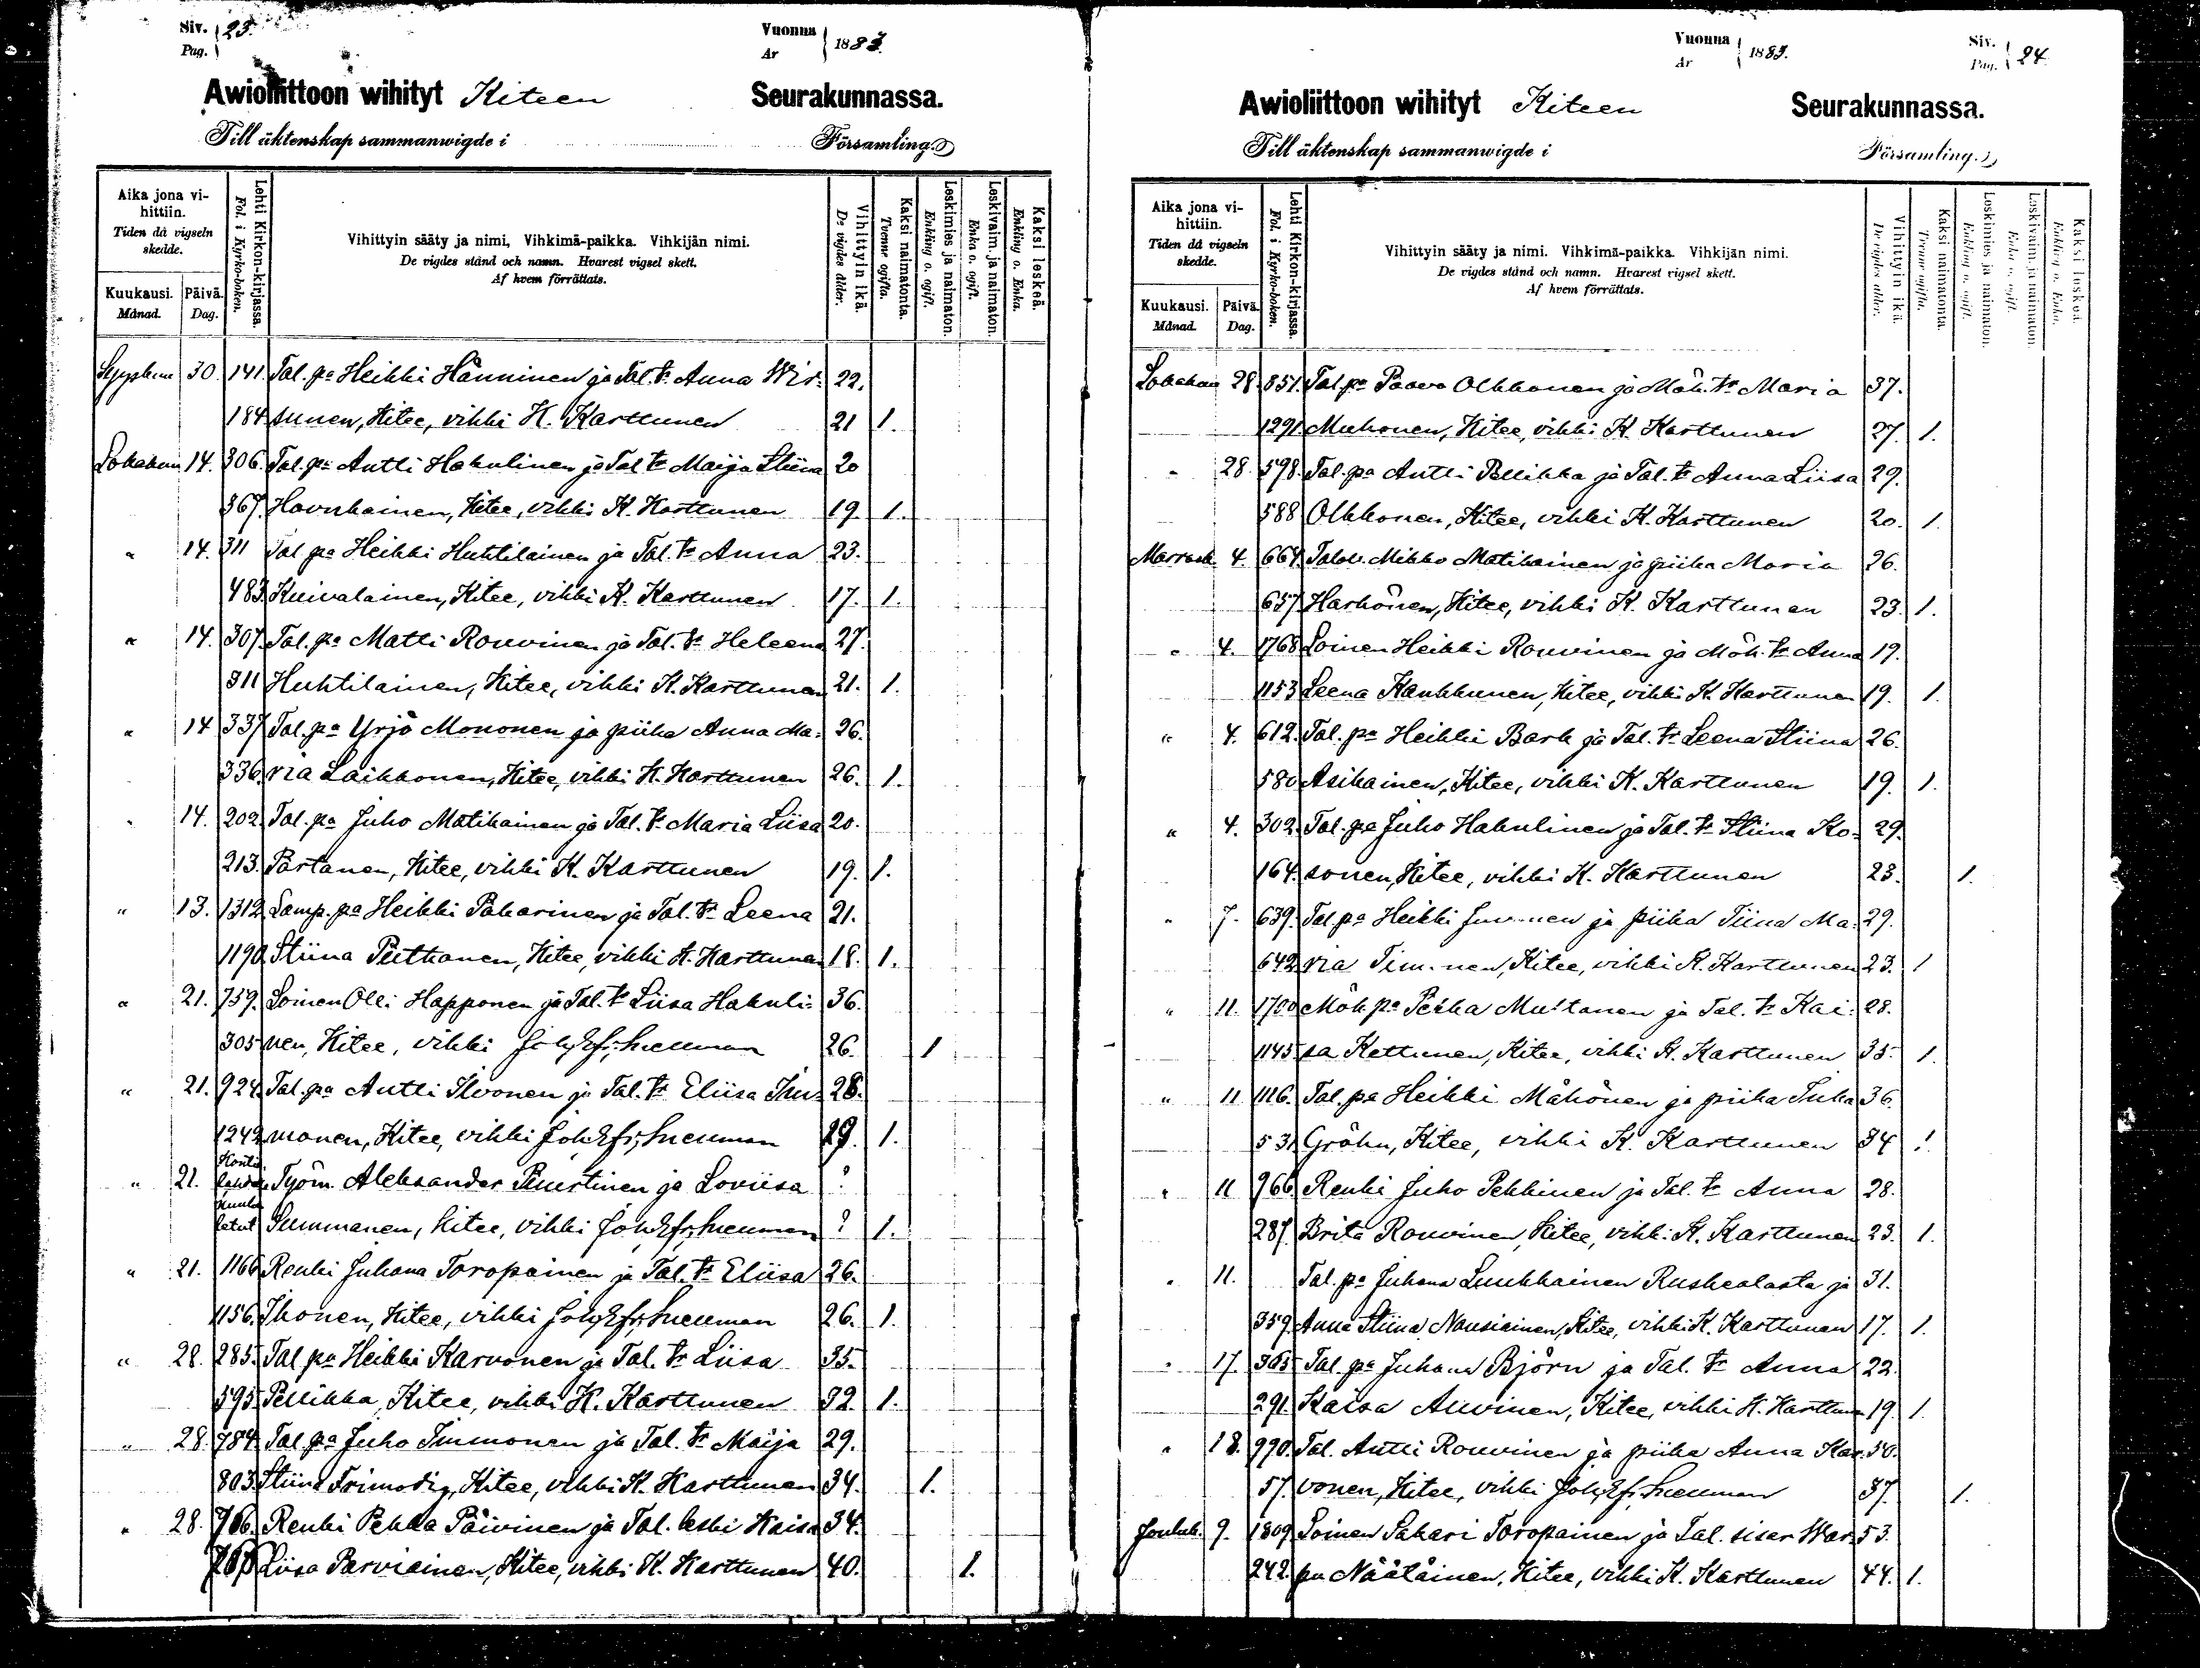 Siv. 23.
Pag.
Vuonna 1883.
År
Awioliittoon wihityt Kiteen Seurakunnassa.
Till äktenskap sammanwigde i Församling.
Aika jona vihittiin.
Tiden då vigseln skedde.
Kuukausi. Månad.
Päivä. Dag.
Lehti Kirkon-kirjassa.
Fol. i Kyrko-boken.
Vihittyin sääty ja nimi, Vihkimä-paikka. Vihkijän nimi.
De vigdes stånd och namn. Hvarest vigsel skett.
Af hvem förrättats.
Vihittyin ikä.
De vigdes ålder.
Kaksi naimatonta.
Tvenne ogifta.
Leskimies ja naimaton.
Enkling o. ogift.
Leskivaim. ja naimaton.
Enka o. ogift.
Kaksi leskeä.
Enkling o. Enka.
30. 141. Tal. pa Heikki Hänninen ja Tal. tr Anna Wir- 22.
184 sunen, Kitee, vihki K. Karttunen 21 1.
Lokakuu 14. 306. Tal. pa Antti Hakulinen ja Tal tr Maija Stiina 20
367. Hovukainen, Kitee, vihki K. Karttunen 19. 1.
" 14. 311 Tal pa Heikki Huhtilainen ja Tal. tr Anna 23.
483. Kuivalainen, Kitee, vihki K. Karttunen 17. 1.
" 14. 307. Tal. pa Matti Rouvinen ja Tal. tr Heleena 27.
311 Huhtilainen, Kitee, vihki K. Karttunen 21. 1.
" 14 337 Tal. pa Yrjö Mononen ja piika Anna Ma- 26.
336. ria Laikkonen, Kitee, vihki K. Karttunen 26. 1.
" 14. 202. Tal. pa Juho Matikainen ja Tal. tr Maria Liisa 20.
213. Partanen, Kitee, vihki K. Karttunen 19. 1.
" 13. 1312. Lamp. pa Heikki Pakarinen ja Tal. tr Leena 21.
1190 Stiina Puttonen, Kitee, vihki K. Karttunen 18. 1.
" 21. 759. Loinen Olli Happonen ja Tal. tr Liisa Hakuli- 36.
305 nen, Kitee, vihki Joh. Efr. Sneuman 26. 1
" 21. 924. Tal. pa Antti Ilvonen ja Tal. tr Eliisa Im- 28.
1242 monen, Kitee, vihki Joh. Efr. Sneuman 29. 1.
" 21. Kontiolahden Työm. Aleksander Puustinen ja Loviisa ?
kuulutut Summanen, Kitee, vihki Joh. Efr. Sneuman ? 1.
" 21. 1166 Renki Juhana Toropainen ja Tal. tr Eliisa 26.
1156. Ihonen, Kitee, vihki Joh. Efr. Sneuman 26. 1.
" 28. 285. Tal pa Heikki Karvonen ja Tal. tr Liisa 35.
595. Pellikka, Kitee, vihki K. Karttunen 32. 1.
" 28. 784. Tal. pa Juho Immonen ja Tal. tr Maija 29.
803. Stiina Frimodig, Kitee, vihki K. Karttunen 34. 1.
" 28. 766. Renki Pekka Päivinen ja Tal. leski Kaisa 34.
Liisa Parviainen, Kitee, vihki K. Karttunen 40. 1.
Vuonna 1883.
År
Siv. 24.
Pag.
Awioliittoon wihityt Kiteen Seurakunnassa.
Till äktenskap sammanwigde i Församling.
Aika jona vihittiin.
Tiden då vigseln skedde.
Kuukausi. Månad.
Päivä. Dag.
Lehti Kirkon-kirjassa.
Fol. i Kyrko-boken.
Vihittyin sääty ja nimi. Vihkimä-paikka. Vihkijän nimi.
De vigdes stånd och namn. Hvarest vigsel skett.
Af hvem förrättats.
Vihittyin ikä.
De vigdes ålder.
Kaksi naimatonta.
Tvenne ogifta.
Leskimies ja naimaton.
Enkling o. ogift.
Leskivaim. ja naimaton.
Enka o. ogift.
Kaksi leskeä.
Enkling o. Enka.
Lokakuu 28. 851. Tal pa Paavo Olkkonen ja Mök. tr Maria 37.
1291. Muhonen, Kitee, vihki K. Karttunen 27. 1.
" 28. 598. Tal. pa Antti Pellikka ja Tal. tr Anna Liisa 29.
588 Olkkonen, Kitee, vihki K. Karttunen 20. 1.
Marrask. 4. 664. Talol. Mikko Matikainen ja piika Maria 26.
657 Harkönen, Kitee, vihki K. Karttunen 23. 1.
" 4. 1768 Loinen Heikki Rouvinen ja Mök. tr Anna 19.
1153 Leena Kaukkunen, Kitee, vihki K. Karttunen 19. 1.
" 4. 612. Tal. pa Heikki Bark ja Tal. tr Leena Stiina 26.
580 Asikainen, Kitee, vihki K. Karttunen 19. 1.
" 4. 302. Tal. pa Juho Hakulinen ja Tal. tr Stiina Ko- 29.
164. sonen, Kitee, vihki K. Karttunen 23. 1.
" 7. 639. Tal pa Heikki ja piika Tiina Ma- 29.
642 ria Timonen, Kitee, vihki K. Karttunen 23. 1
" 11. 1700 Mök. pa Pekka Mustonen ja Tal. tr Kai- 28.
1145 sa Kettunen, Kitee, vihki K. Karttunen 35. 1.
" 11 1116. Tal. pa Heikki Mähönen ja piika Inka 36.
531 Gröhn, Kitee, vihki K. Karttunen 34 1.
" 11 966 Renki Juho Pekkinen ja Tal. tr Anna 28.
287. Brita Rouvinen, Kitee, vihki K. Karttunen 23. 1.
" 11. Tal. pa Juhana Luukkainen Ruskealasta ja 31.
359. Anna Stiina Nousiainen, Kitee, vihki K. Karttunen 17. 1.
" 17. 365 Tal. pa Juhana Björn ja Tal. tr Anna 22.
291. Kaisa Auvinen, Kitee, vihki K. Karttunen 19. 1.
" 18. 990. Tal. Antti Rouvinen ja piika Anna Kar- 50.
57. vonen, Kitee, vihki Joh. Efr. Sneuman 37. 1.
Jouluk. 9. 1809 Loinen Sakari Toropainen ja Tal. sisar War- 53.
242. pu Näätäinen, Kitee, vihki K. Karttunen 44. 1.